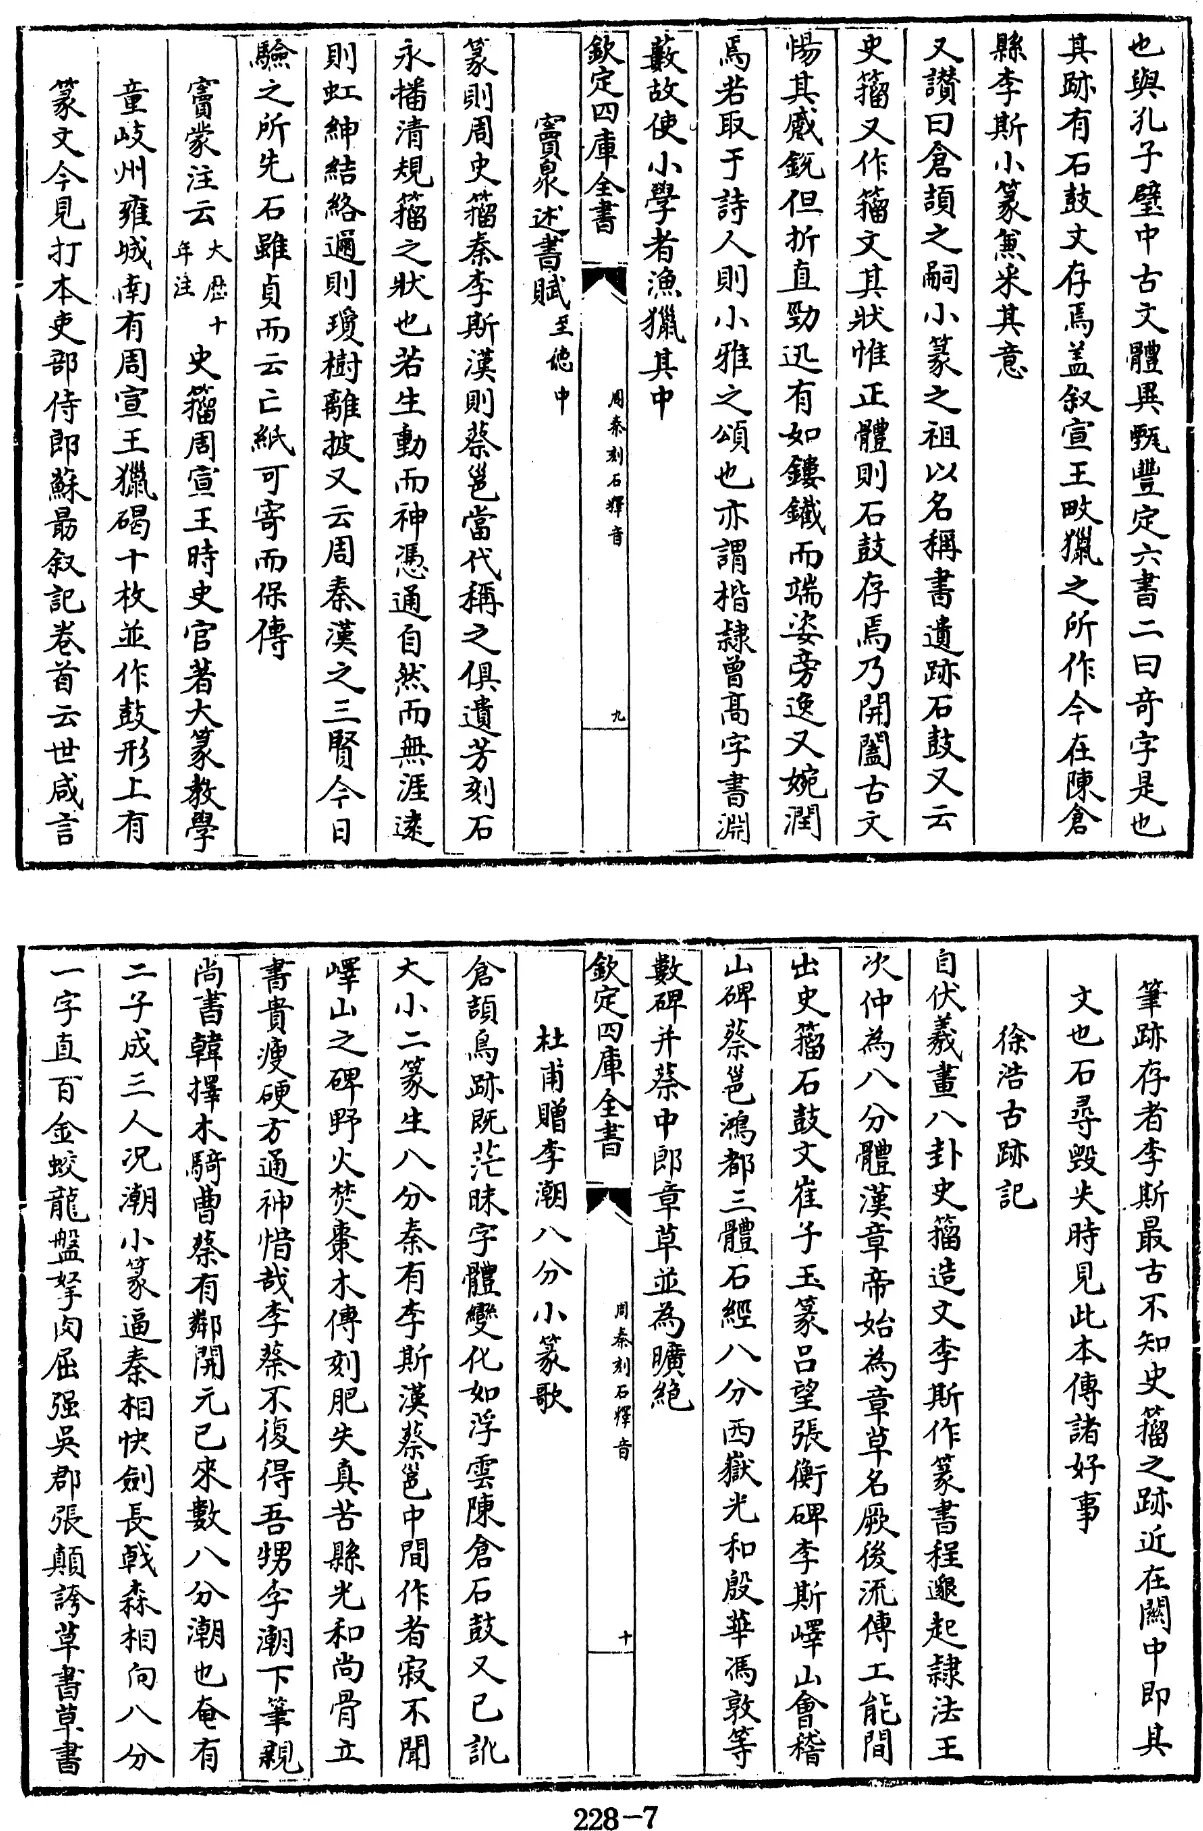 也與孔子壁中古文體異甄豐定六書二曰奇字是也
其跡有石鼓文存焉盖叙宣王畋獵之所作今在陳倉
縣李斯小篆兼采其意
又讃曰倉頡之嗣小篆之祖以名稱書遺跡石鼓又云
史籀又作籀文其狀惟正體則石鼓存焉乃開闔古文
惕其威銳但折直勁迅有如鏤鐵而端姿旁逸又婉潤
焉若取于詩人則小雅之頌也亦謂楷隸曾高字書淵
藪故使小學者漁獵其中
欽定四庫全書
周秦刻石釋音
九
竇泉述書賦至德中
篆則周史籀秦李斯漢則蔡邕當代稱之俱遺芳刻石
永播清規籀之狀也若生動而神憑通自然而無涯遠
則虹紳結絡邇則瓊樹離披又云周秦漢之三賢今日
驗之所先石雖貞而云亡紙可寄而保傳
竇蒙注云大歴十年注史籀周宣王時史官著大篆教學
童岐州雍城南有周宣王獵碣十枚並作鼓形上有
篆文今見打本吏部侍郎蘇勗叙記卷首云世咸言
筆跡存者李斯最古不知史籀之跡近在關中即其
文也石尋毀失時見此本傳諸好事
徐浩古跡記
自伏羲畫八卦史籀造文李斯作篆書程邈起隸法王
次仲為八分體漢章帝始為章草名厥後流傳工能間
出史籀石鼓文崔子玉篆吕望張衡碑李斯嶧山會稽
山碑蔡邕鴻都三體石經八分西嶽光和殷華馮敦等
數碑并蔡中郎章草並為曠絶
欽定四庫全書
周秦刻石釋音
十
杜甫贈李潮八分小篆歌
倉頡鳥跡既茫昧字體變化如浮雲陳倉石鼓又已訛
大小二篆生八分秦有李斯漢蔡邕中間作者寂不聞
嶧山之碑野火焚棗木傳刻肥失真苦縣光和尚骨立
書貴瘦硬方通神惜哉李蔡不復得吾甥李潮下筆親
尚書韓擇木騎曹蔡有鄰開元已來數八分潮也奄有
二子成三人况潮小篆逼秦相快劍長戟森相向八分
一字直百金蛟龍盤拏肉屈强吳郡張顛誇草書草書
228-7